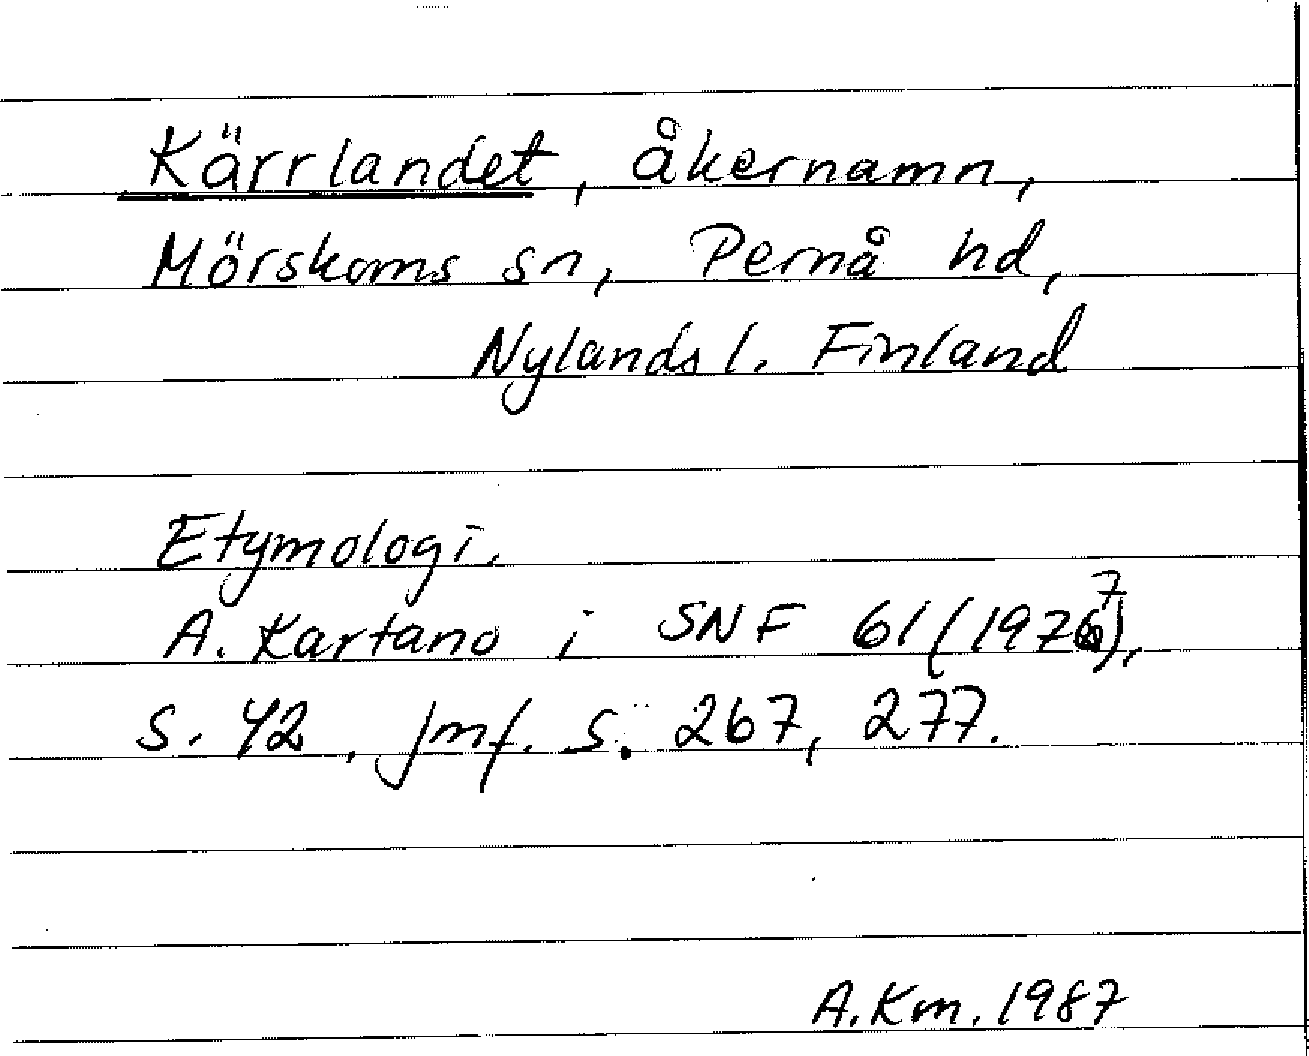 Kärrlandet, åkernamn,
Mörskoms sn, Pernå hd,
Nylands l. Finland
Etymologi.
A. Kartano i SNF 61 (1977),
s. 42, jmf. s. 267, 277.
A. Km. 1987